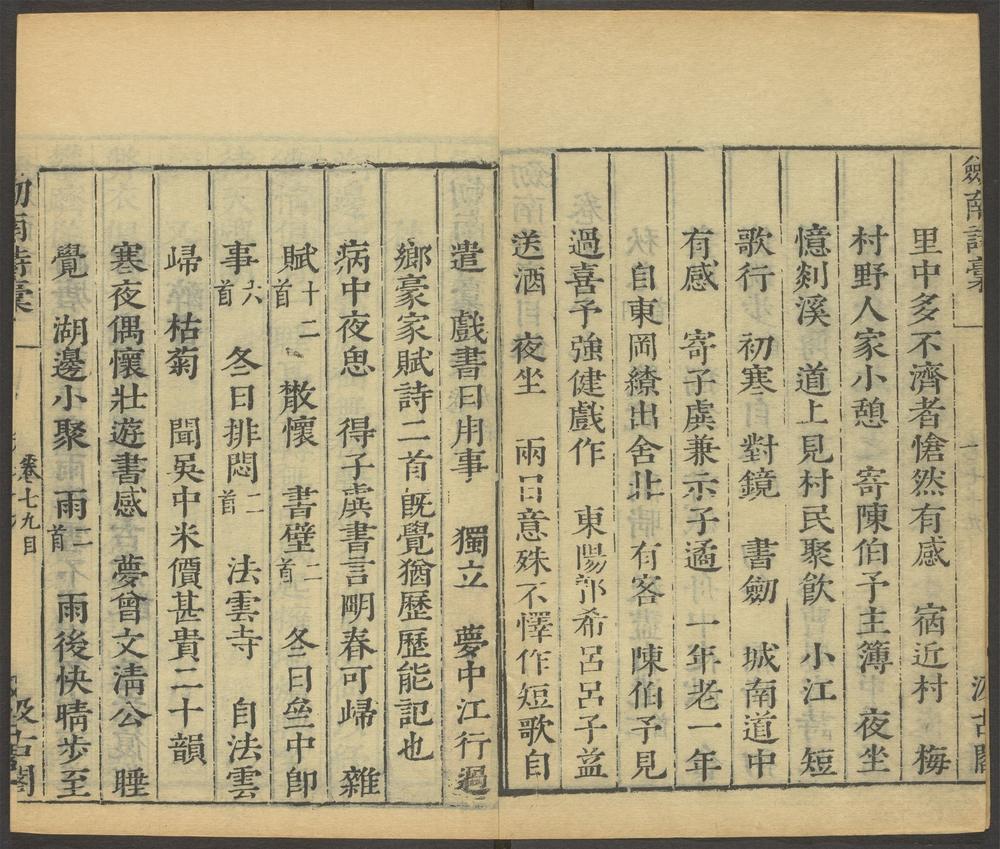 里中多不濟者愴然有感　宿近村　梅
村野人家小憩　寄陳伯予主簿　夜坐
憶剡溪　道上見村民聚飮　小江　短
歌行　初寒　對鏡　書劒　城南道中
有感　寄子虡兼示子遹　一年老一年
自東岡繚出舍北　晴　有客　陳伯予見
過喜予強健戲作　東陽郭希呂呂子益
送酒　夜坐　兩日意殊不懌作短歌自
遣　戲書日用事　獨立　夢中江行過
鄉豪家賦詩二首旣覺猶歷歷能記也
病中夜思　得子虡書言明春可歸　雜
賦十二首　散懷　書壁二首　冬日壘中卽
事六首　冬日排悶二首　法雲寺　自法雲
歸　枯菊　聞吳中米價甚貴二十韻
寒夜偶懷壯遊書感　夢曾文淸公　睡
覺　湖邊小聚　雨二首　雨後快晴步至
卷七九目
汲古閣